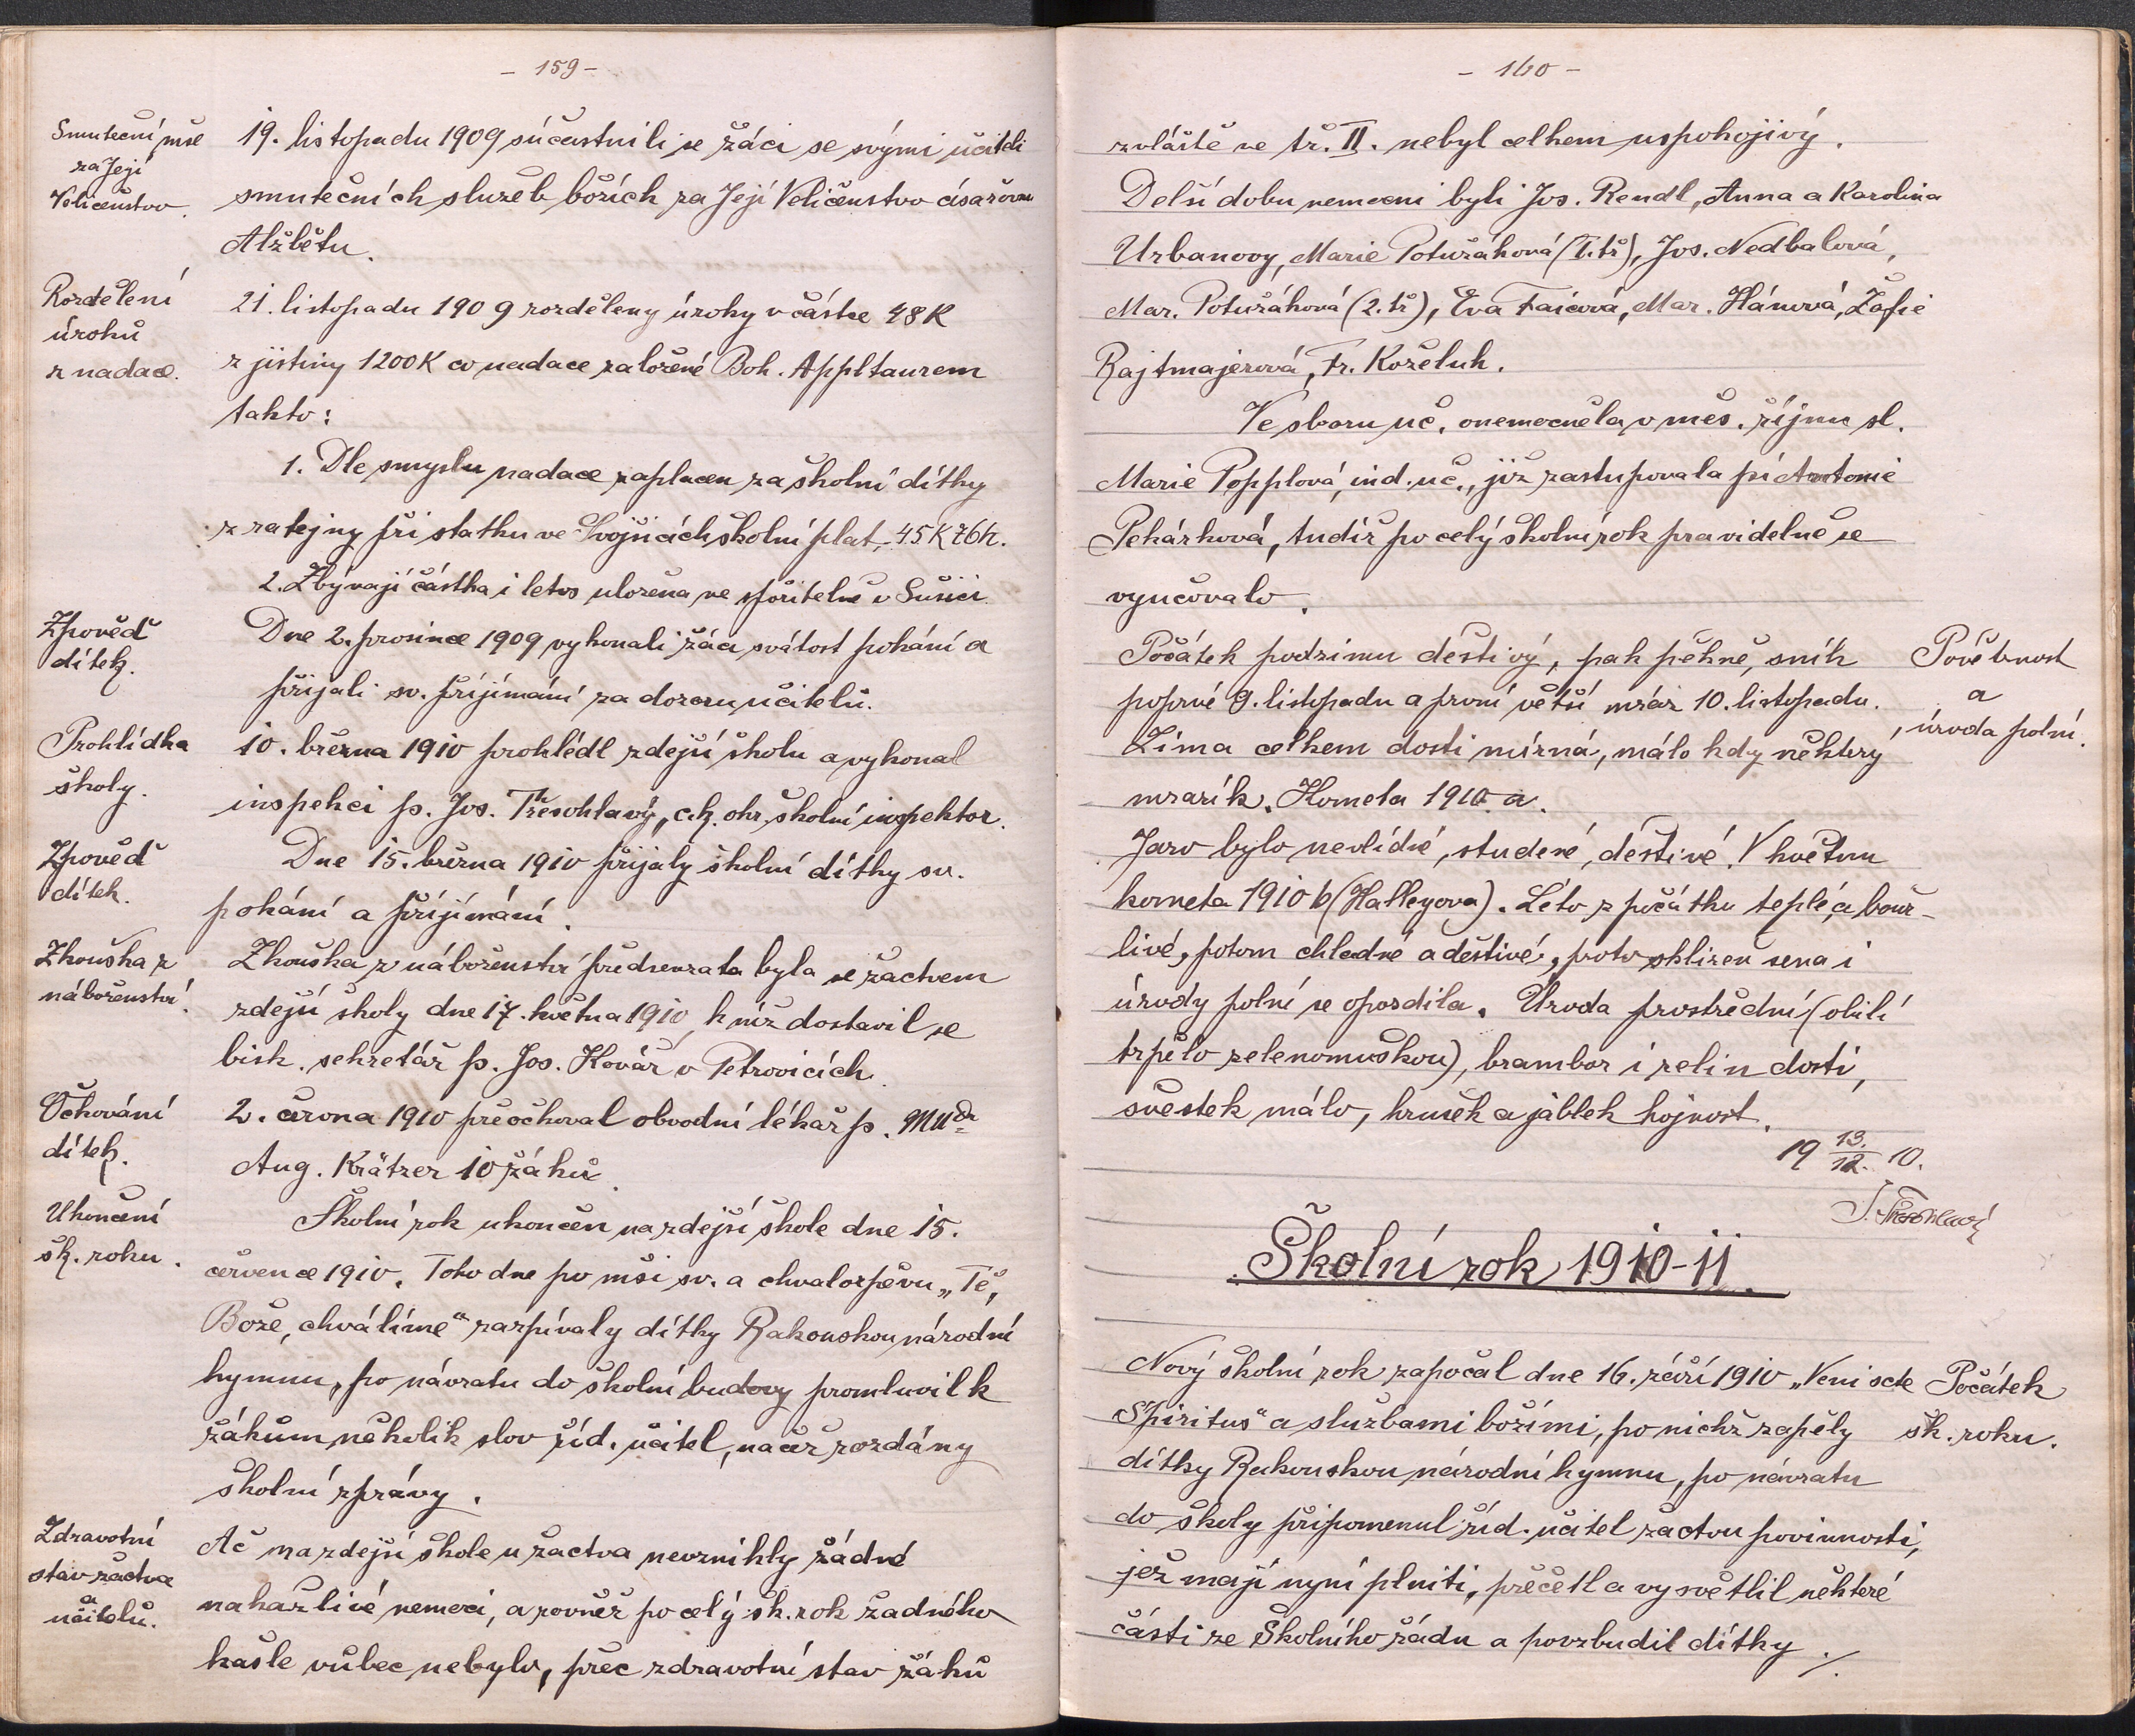 - 159 -
Smuteční mše
za Její
Veličenstvo.
19. listopadu 1909 súčastnili se žáci se svými učiteli
smutečních služeb božích za Její Veličenstvo císařovnu
Alžbětu.
Rozdělení
úroků
z nadace.
21. listopadu 1909 rozděleny úroky v částce 48 K
z jistiny 1200 K co nadace založené Boh. Appltaurem
takto:
1. Dle smyslu nadace zaplacen za školní dítky
z ratejny při statku ve Svojšicích školní plat, 45 K 76 h.
2. Zbývají částka i letos uložena ve spořitelně v Sušici.
Zpověď
dítek.
Dne 2. prosince 1909 vykonali žáci svátost pokání a
přijali sv. přijímání za dozoru učitelů.
Prohlídka
školy.
10. března 1910 prohlédl zdejší školu a vykonal
inspekci p. Jos. Třesohlavý, c.k. okr. školní inspektor.
Zpověď
dítek.
Dne 15. března 1910 přijaly školní dítky sv.
pokání a přijímání.
Zkouška z
náboženství.
Zkouška z náboženství předsevzata byla se žactvem
zdejší školy dne 17. května 1910, k níž dostavil se
bisk. sekretář p. Jos. Kovář v Petrovicích.
Očkování
dítek.
2. června 1910 přeočkoval obvodní lékař p. MUdr
Aug. Krätzer 10 žáků.
Ukončení
šk. roku.
Školní rok ukončen na zdejší škole dne 15.
července 1910. Toho dne po mši sv. a chvalozpěvu „Tě,
Bože, chválíme" zazpívaly dítky Rakouskou národní
hymnu, po návratu do školní budovy promluvil k
žákům několik slov říd. učitel, načež rozdány
školní zprávy.
Zdravotní
stav žactva
a
učitelů.
Ač na zdejší škole u žactva nevznikly žádné
nakažlivé nemoci, a rovněž po celý šk. rok žadného
kašle vůbec nebylo, přec zdravotní stav žáků
- 160 -
zvláště ve tř. II. nebyl celkem uspokojivý.
Delší dobu nemocni byli Jos. Rendl, Anna a Karolina
Urbanovy, Marie Potužáková (I. tř), Jos. Nedbalová,
Mar. Potužáková (2. tř), Eva Faicová, Mar. Hánová, Žofie
Rajtmajerová, Fr. Koželuh.
Ve sboru uč. onemocněla v měs. říjnu sl.
Marie Popplová, ind. uč., již zastupovala pí Antonie
Pekárková, tudíž po celý školní rok pravidelně se
vyučovalo.
Povětrnost
a
úroda polní.
Počátek podzimu deštivý, pak pěkně, sníh
poprvé 9. listopadu a první větší mráz 10. listopadu.
Zima celkem dosti mírná, málo kdy některy
mrazík. Kometa 1910 a.
Jaro bylo nevlídné, studené, deštivé. V květnu
kometa 1910 b (Halleyova). Léto z počátku teplé, a bouř-
livé, potom chladné a deštivé, proto sklizen sena i
úrody polní se opozdila. Úroda prostřední (obilí
trpělo zelenomuškou), brambor i zelin dosti,
švestek málo, hrušek a jablek hojnost.
19 13./12. 10.
J. Třesohlavý
Školní rok 1910-11.
Počátek
šk. roku.
Nový školní rok započal dne 16. září 1910 „Veni scte
Spiritus" a službami božími, po nichž zapěly
dítky Rakouskou národní hymnu, po návratu
do školy připomenul říd. učitel žactvu povinnosti,
jež mají nyní plniti, přečetl a vysvětlil některé
části ze Školního řádu a povzbudil dítky ./.